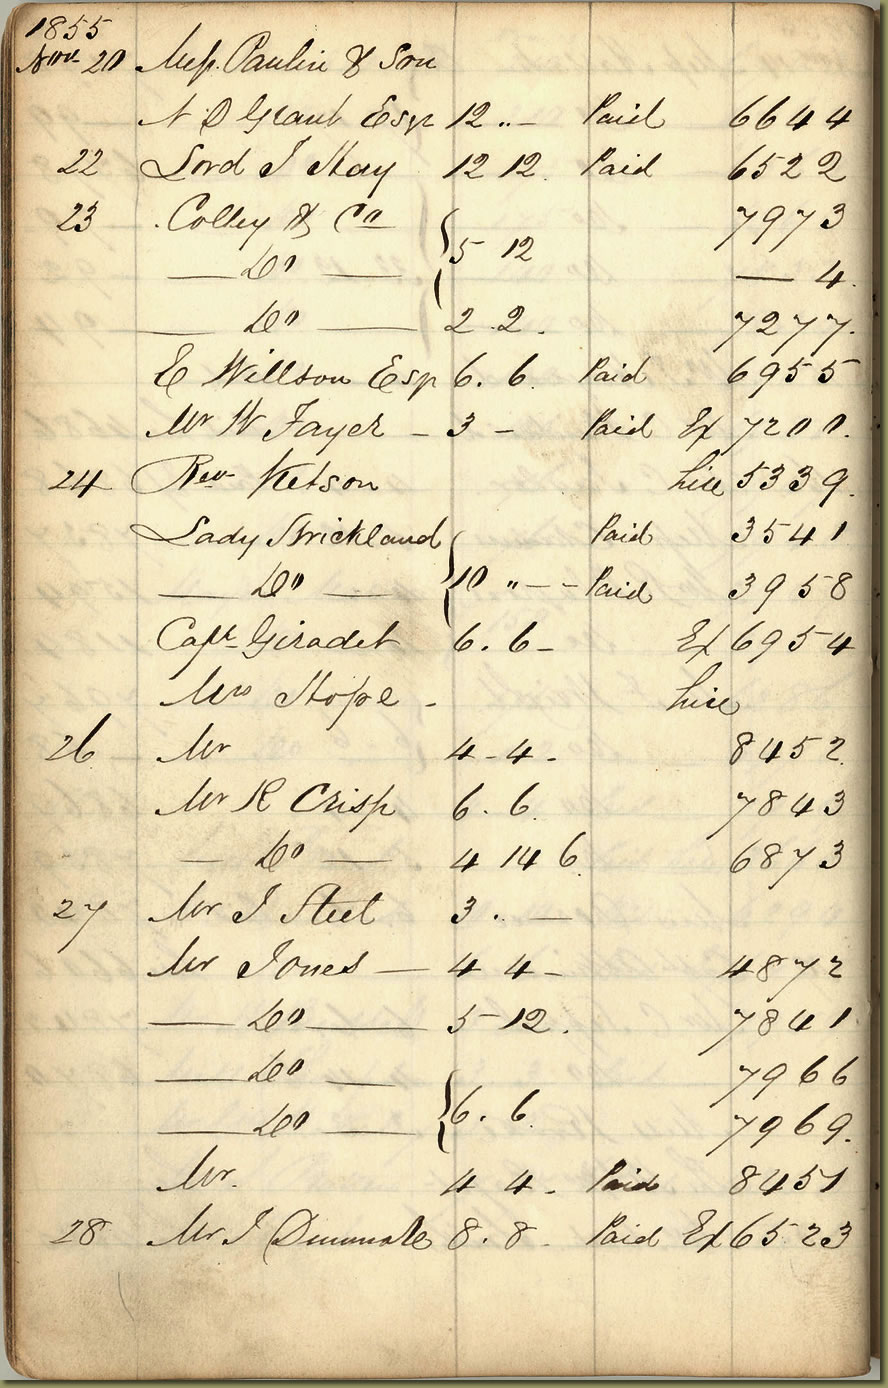 1855
Nov 20 Mess. Paulin & Son
N D Grant Esqr 12 ,, — Paid 6644
22 Lord J Hay 12 12 Paid 6522
23 Colley & Co 7973
— Do — { 5 12 — 4.
— Do — 2.2. 7277.
E Willson Esqr 6. 6. Paid 6955
Mr W Fayer – 3 – Paid Ex 7200.
24 Rev Ketson hire 5339.
Lady Strickland Paid 3541
— Do — { 10 ,, – – Paid 3958
Capt Giradet 6. 6 – Ex 6954
Mrs Hope – hire
26 Mr 4 - 4. 8452
Mr R Crisp 6. 6. 7843
— Do — 4 14 6 6873
27 Mr J Steel 3. —
Mr Jones — 4 4 – 4872
— Do — 5 - 12. 7841
— Do — 7966
— Do — { 6. 6. 7969.
Mr. 4 4. Paid 8451
28 Mr J 8. 8. Paid Ex 6523